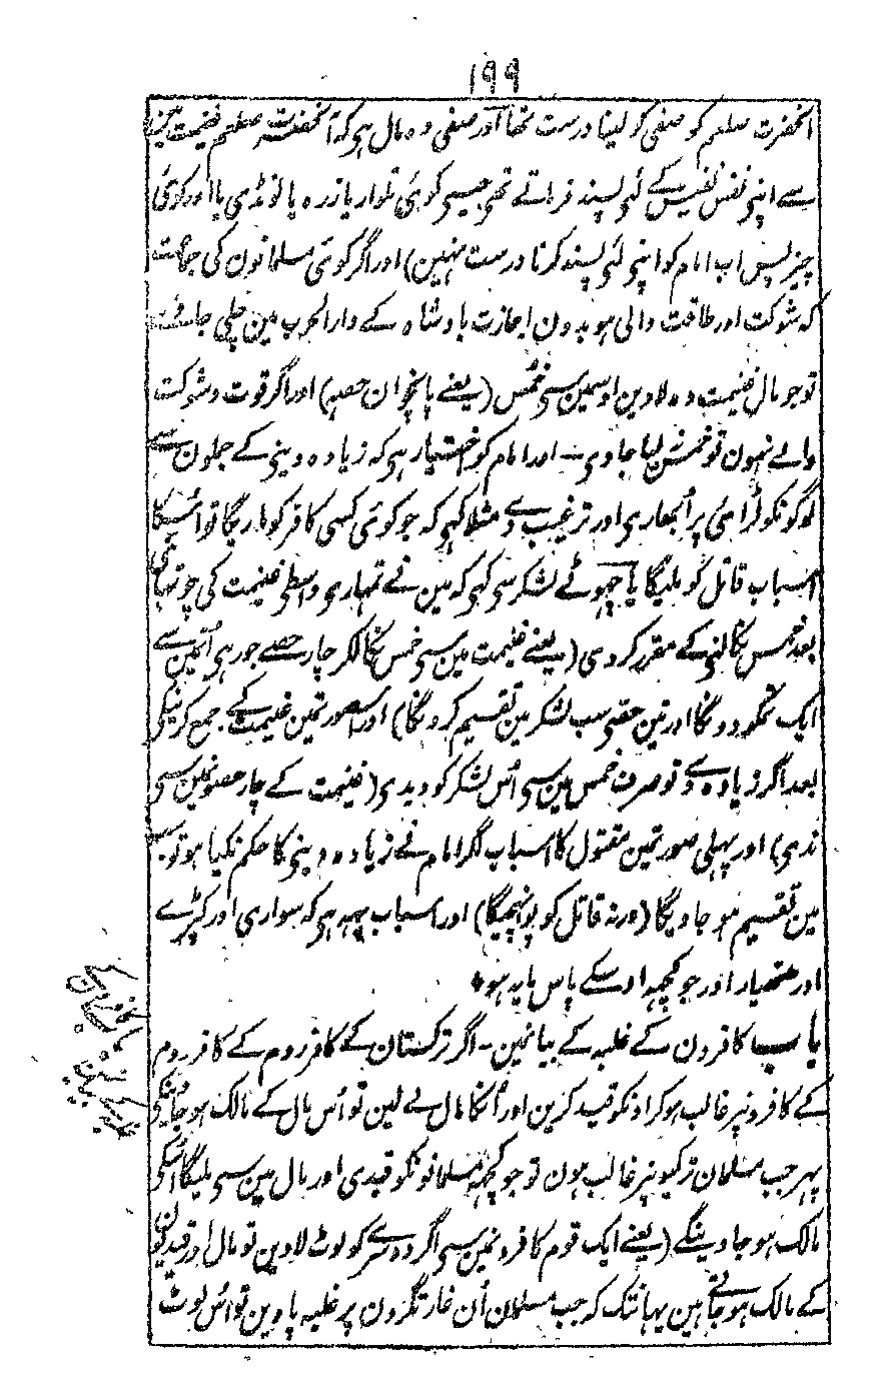 ۱۹۹
آنحضرت صلعم کو صفی کو لینا درست تھا اور صفی وہ مال ہی کہ آنحضرت صلعم غنیمت مین
سے اپنی نفس نفیس کے لئی پسند فرماتے تھی جیسی کوئی تلوار یا زرہ یا لونڈی یا اور کوئی
چیز پس اب امام کو اپنی لئی پسند کرنا درست نہین) اور اگر کوئی مسلمانون کی جماعت
کہ شوکت اور طاقت والی ہو بدون اجازت بادشاہ کے دار الحرب مین چلی جائے
تو جو مال غنیمت وہ لاوین اوسمین سی خمس (یعنے پانچوان حصہ) اور اگر قوت و شوکت
والے نہون تو خمس نلیا جاوی ـ اور امام کو اختیار ہی کہ زیادہ دینی کے جملون سے
لوگونکو لڑائی پر اُبھاری اور ترغیب دے مثلا کہی کہ جو کوئی کسی کافر کو ماریگا تو اُسکا
اسباب قاتل کو ملیگا یا چھوٹے لشکر سی کہی کہ مین نے تمہاری واسطی غنیمت کی چوتھائی
بعد خمس نکالنی کے مقرر کردی (یعنے غنیمت مین سی خمس نکالکر چار حصے جو رہی اُنمین سے
ایک تمکو دونگا اور تین حصّی سب لشکر مین تقسیم کرونگا) اور اسصورتمین غنیمت کے جمع کرنیکی
بعد اگر زیادہ دے تو صرف خمس مین سی اُس لشکر کو دیدی (غنیمت کے چار حصونمین سی
ندی) اور پہلی صورتمین مقتول کا اسباب اگر امام نے زیادہ دینی کا حکم نکیا ہو تو سب
مین تقسیم ہو جاویگا (ورنہ قاتل کو پونہچیگا) اور اسباب یہہ ہی کہ سواری اور کپڑے
اور ہتھیار اور جو کچھہ اوسکے پاس مایہ ہو
باب کافرون کے غلبہ کے بیانمین ـ اگر ترکستان کے کافر روم کے کافر روم
کے کافرونپر غالب ہوکر اونکو قید کرین اور اُنکا مال لے لین تو اُس مال کے مالک ہو جاوینگی
پہر جب مسلمان ترکیونپر غالب ہون تو جو کچھہ مسلمانونکو قیدی اور مال مین سی ملیگا اُسکی
مالک ہو جاوینگے (یعنے ایک قوم کافرونمین سی اگر دوسرے کو لوٹ لاوین تو مال اور قیدیون
کے مالک ہو جاتے ہین یہانتک کہ جب مسلمان اُن غارتگرون پر غلبہ پاوین تو اُس لوٹ